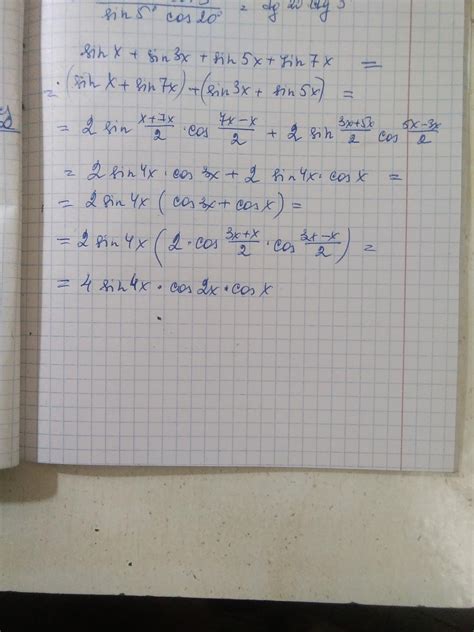 sin 5° cos 20°
sin x + sin 3x + sin 5x + sin 7x =
= (sin x + sin 7x) + (sin 3x + sin 5x) =
= 2 sin (x+7x)/2 · cos (7x-x)/2 + 2 sin (3x+5x)/2 cos (5x-3x)/2
= 2 sin 4x · cos 3x + 2 sin 4x · cos x =
= 2 sin 4x (cos 3x + cos x) =
= 2 sin 4x (2 · cos (3x+x)/2 · cos (3x-x)/2) =
= 4 sin 4x · cos 2x · cos x